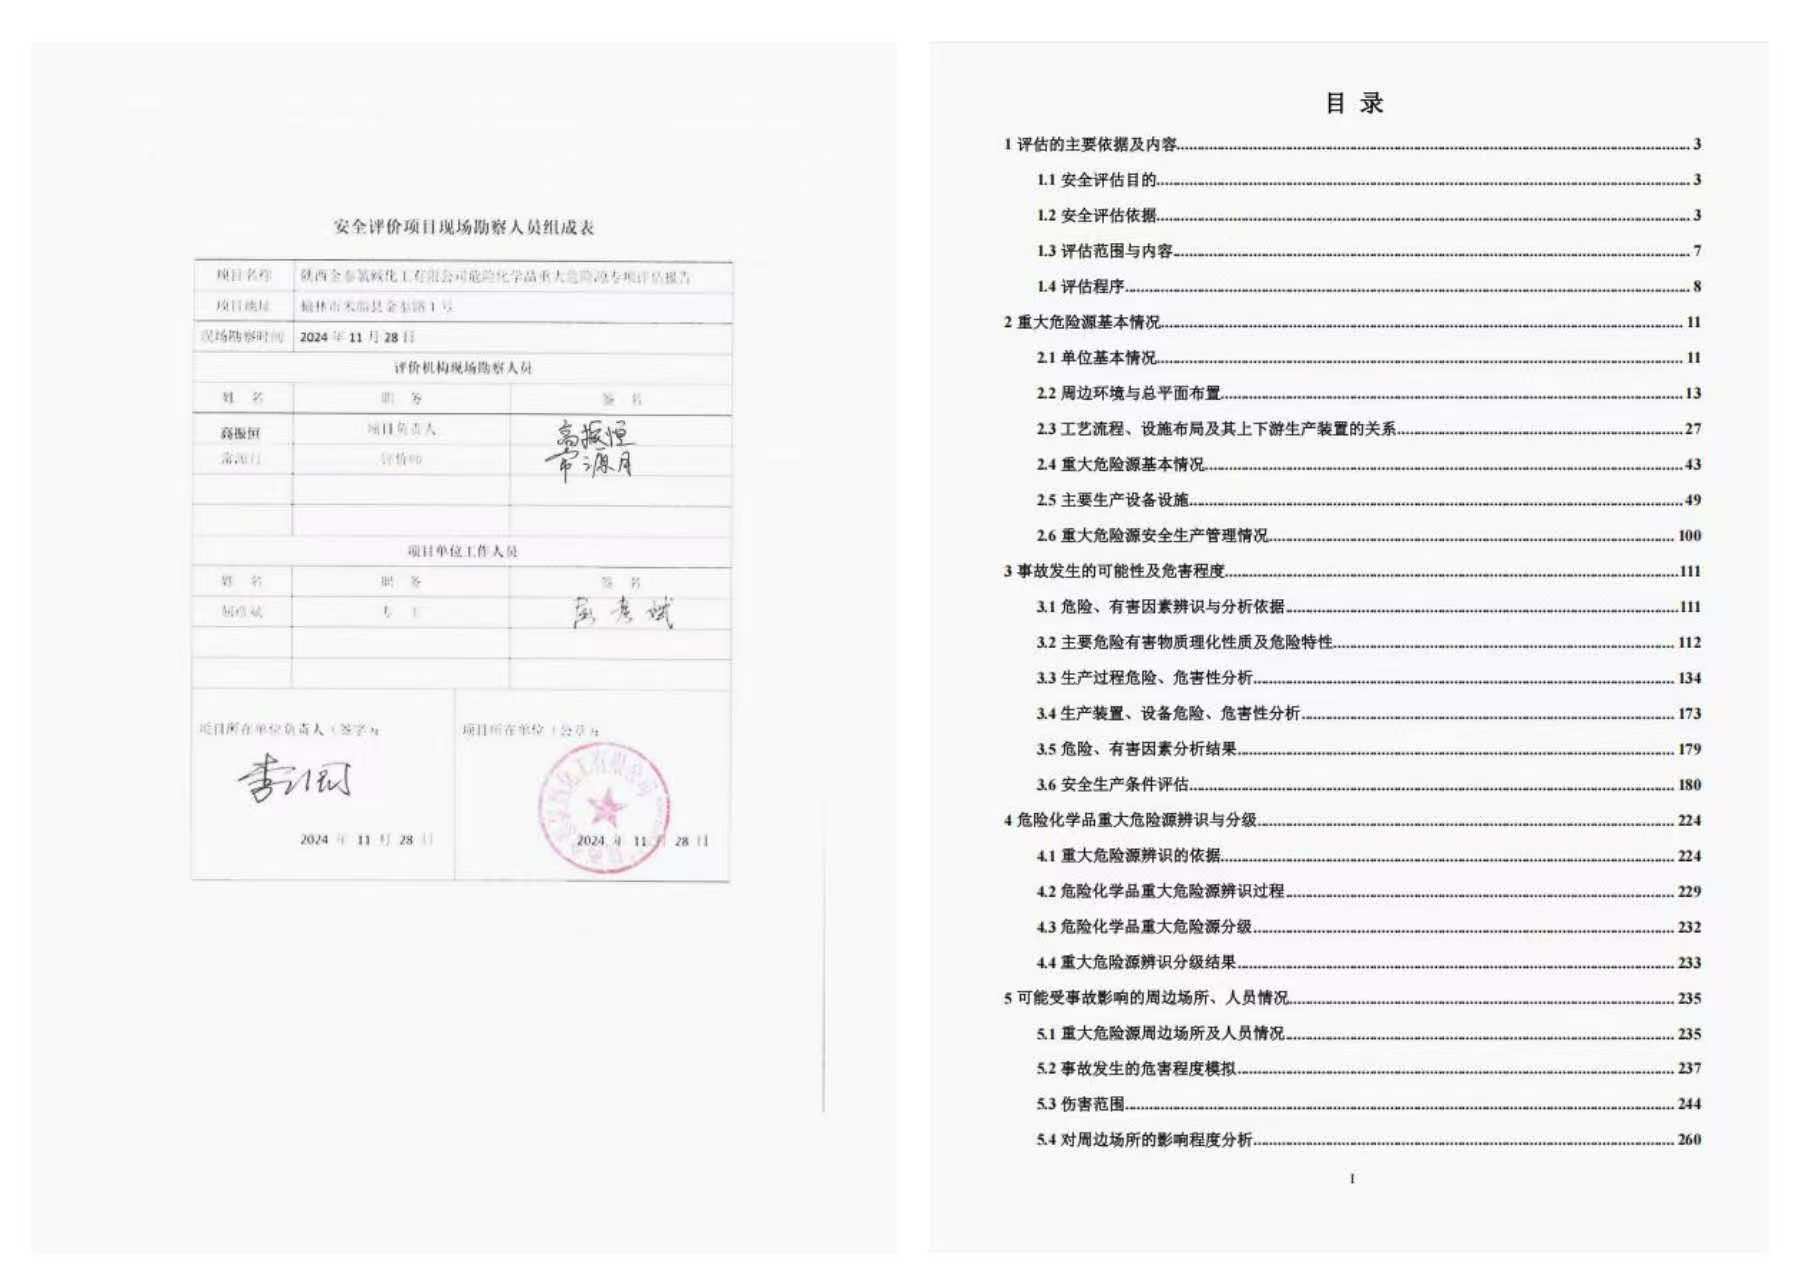 安全评价项目现场勘察人员组成表
项目名称 陕西金泰氯碱化工有限公司危险化学品重大危险源专项评估报告
项目地址 榆林市米脂县金泰路1号
现场勘察时间 2024 年 11 月 28 日
评价机构现场勘察人员
姓 名 职 务 签 名
高振恒 项目负责人 高振恒
常源月 评价师 常源月
项目单位工作人员
姓 名 职 务 签 名
专 工
项目所在单位负责人(签字):
项目所在单位(公章):
化工有限公司
2024 年 11 月 28 日
2024 年 11 月 28 日
目 录
1 评估的主要依据及内容 3
1.1 安全评估目的 3
1.2 安全评估依据 3
1.3 评估范围与内容 7
1.4 评估程序 8
2 重大危险源基本情况 11
2.1 单位基本情况 11
2.2 周边环境与总平面布置 13
2.3 工艺流程、设施布局及其上下游生产装置的关系 27
2.4 重大危险源基本情况 43
2.5 主要生产设备设施 49
2.6 重大危险源安全生产管理情况 100
3 事故发生的可能性及危害程度 111
3.1 危险、有害因素辨识与分析依据 111
3.2 主要危险有害物质理化性质及危险特性 112
3.3 生产过程危险、危害性分析 134
3.4 生产装置、设备危险、危害性分析 173
3.5 危险、有害因素分析结果 179
3.6 安全生产条件评估 180
4 危险化学品重大危险源辨识与分级 224
4.1 重大危险源辨识的依据 224
4.2 危险化学品重大危险源辨识过程 229
4.3 危险化学品重大危险源分级 232
4.4 重大危险源辨识分级结果 233
5 可能受事故影响的周边场所、人员情况 235
5.1 重大危险源周边场所及人员情况 235
5.2 事故发生的危害程度模拟 237
5.3 伤害范围 244
5.4 对周边场所的影响程度分析 260
I